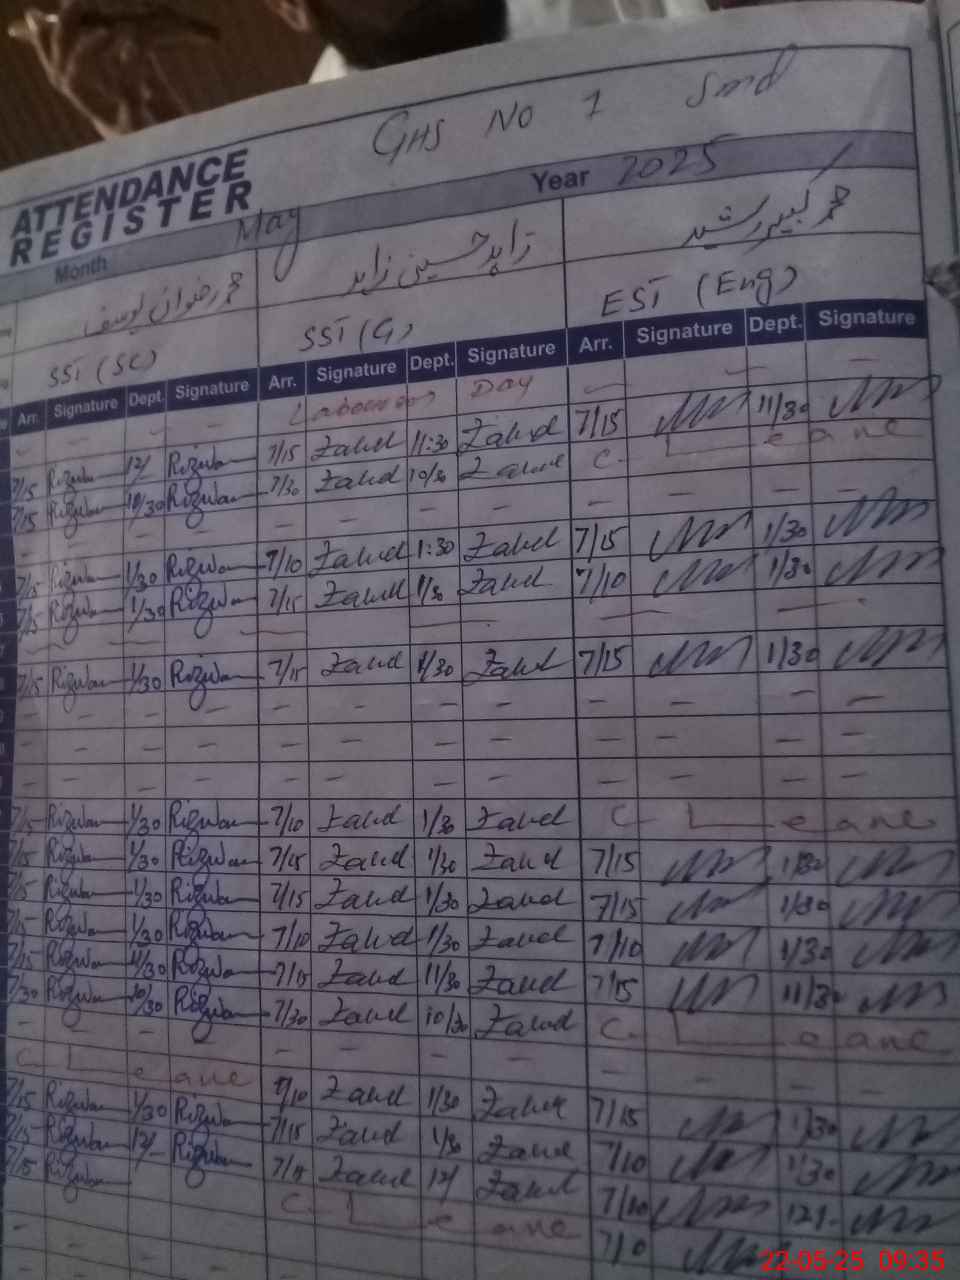 GHS No 1 Smd
ATTENDANCE
REGISTER
Month May Year 2025
محمد رضوان یوسف زاہد حسین زاہد محمد کبیر رشید
SST (SC) SST (G) EST (Eng)
Arr. Signature Dept. Signature Arr. Signature Dept. Signature Arr. Signature Dept. Signature
- - - Day - - -
7/15 Rizwan 12/- Rizwan 7/15 Zahid 11:30 Zahid 7/15 11/30
7/15 Rizwan 10/30 Rizwan 7/30 Zahid 10/30 Zahid C. Leave
- - - - - - - - - - -
7/15 Rizwan 1/30 Rizwan 7/10 Zahid 1:30 Zahid 7/15 1/30
7/15 Rizwan 1/30 Rizwan 7/15 Zahid 1/30 Zahid 7/10 1/30
7/15 Rizwan 1/30 Rizwan 7/15 Zahid 1/30 Zahid 7/15 1/30
- - - - - - - - - - -
- - - - - - - - - - -
- - - - - - - - - - -
7/15 Rizwan 1/30 Rizwan 7/10 Zahid 1/30 Zahid C Leave
7/15 Rizwan 1/30 Rizwan 7/15 Zahid 1/30 Zahid 7/15 1/30
7/15 Rizwan 1/30 Rizwan 7/15 Zahid 1/30 Zahid 7/15 1/30
7/15 Rizwan 1/30 Rizwan 7/10 Zahid 1/30 Zahid 7/10 1/30
7/15 Rizwan 11/30 Rizwan 7/15 Zahid 11/30 Zahid 7/15 11/30
7/30 Rizwan 10/30 Rizwan 7/30 Zahid 10/30 Zahid C. Leave
- - - - - - - - - - -
C Leave 7/10 Zahid 1/30 Zahid 7/15 1/30
7/15 Rizwan 1/30 Rizwan 7/15 Zahid 1/30 Zahid 7/10 1/30
7/15 Rizwan 12/- Rizwan 7/15 Zahid 12/ Zahid 7/10 12/-
7/15 Rizwan C. Leave 7/0
22-05-25 09:35